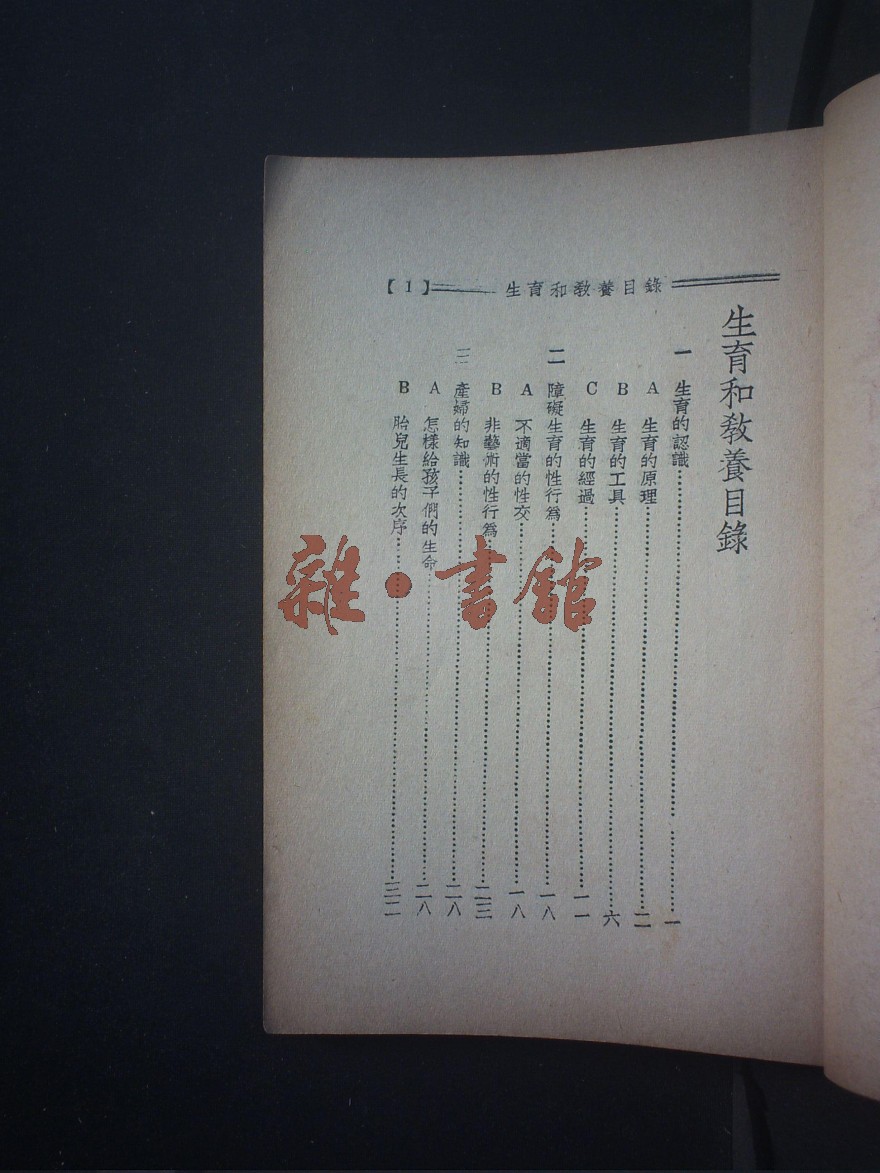 【1】 生育和教養目錄
生育和教養目錄
一 生育的認識 一
A 生育的原理 二
B 生育的工具 六
C 生育的經過 一一
二 障礙生育的性行為 一八
A 不適當的性交 一八
B 非藝術的性行為 二三
三 產婦的知識 二八
A 怎樣給孩子們的生命 二八
B 胎兒生長的次序 三二
雜·書館